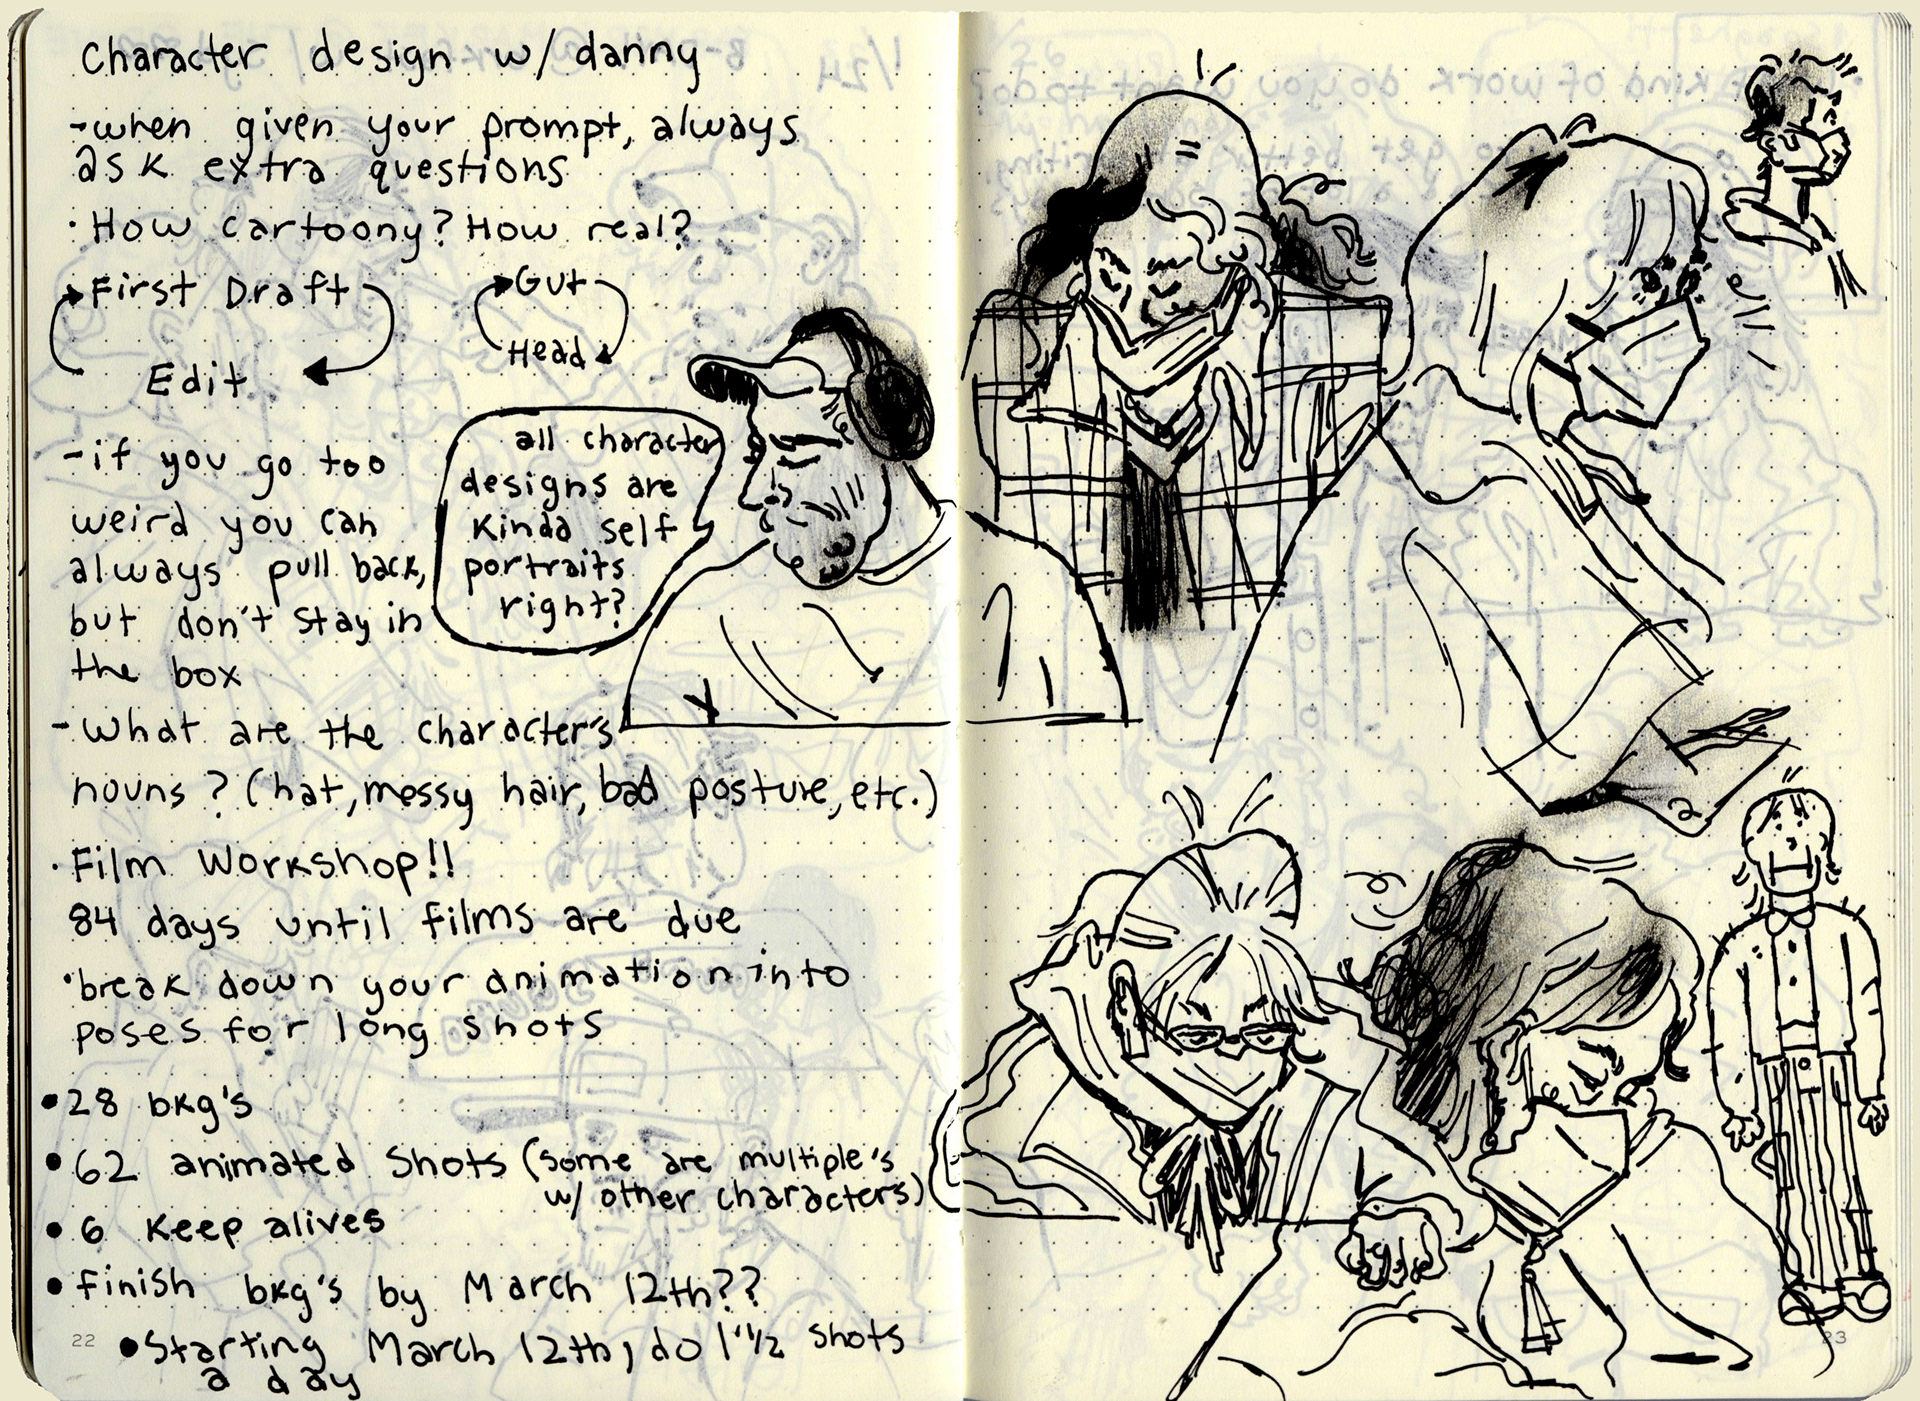 Character design w/ danny
-when given your prompt, always
ask extra questions
· How cartoony? How real?
First Draft
Edit
Gut
Head
-if you go too
weird you can
always pull back,
but don't stay in
the box
all character
designs are
Kinda self
portraits
right?
- What are the character's
nouns? (hat, messy hair, bad posture, etc.)
· Film Workshop!!
84 days until films are due
·break down your animation into
poses for long shots
• 28 bkg's
• 62 animated Shots (some are multiple's
w/ other characters)
• 6 Keep alives
• finish bkg's by March 12th??
• Starting March 12th, do 1 1/2 shots
a day
22
1/24
kind of work do you want to do?
get better at writing
23